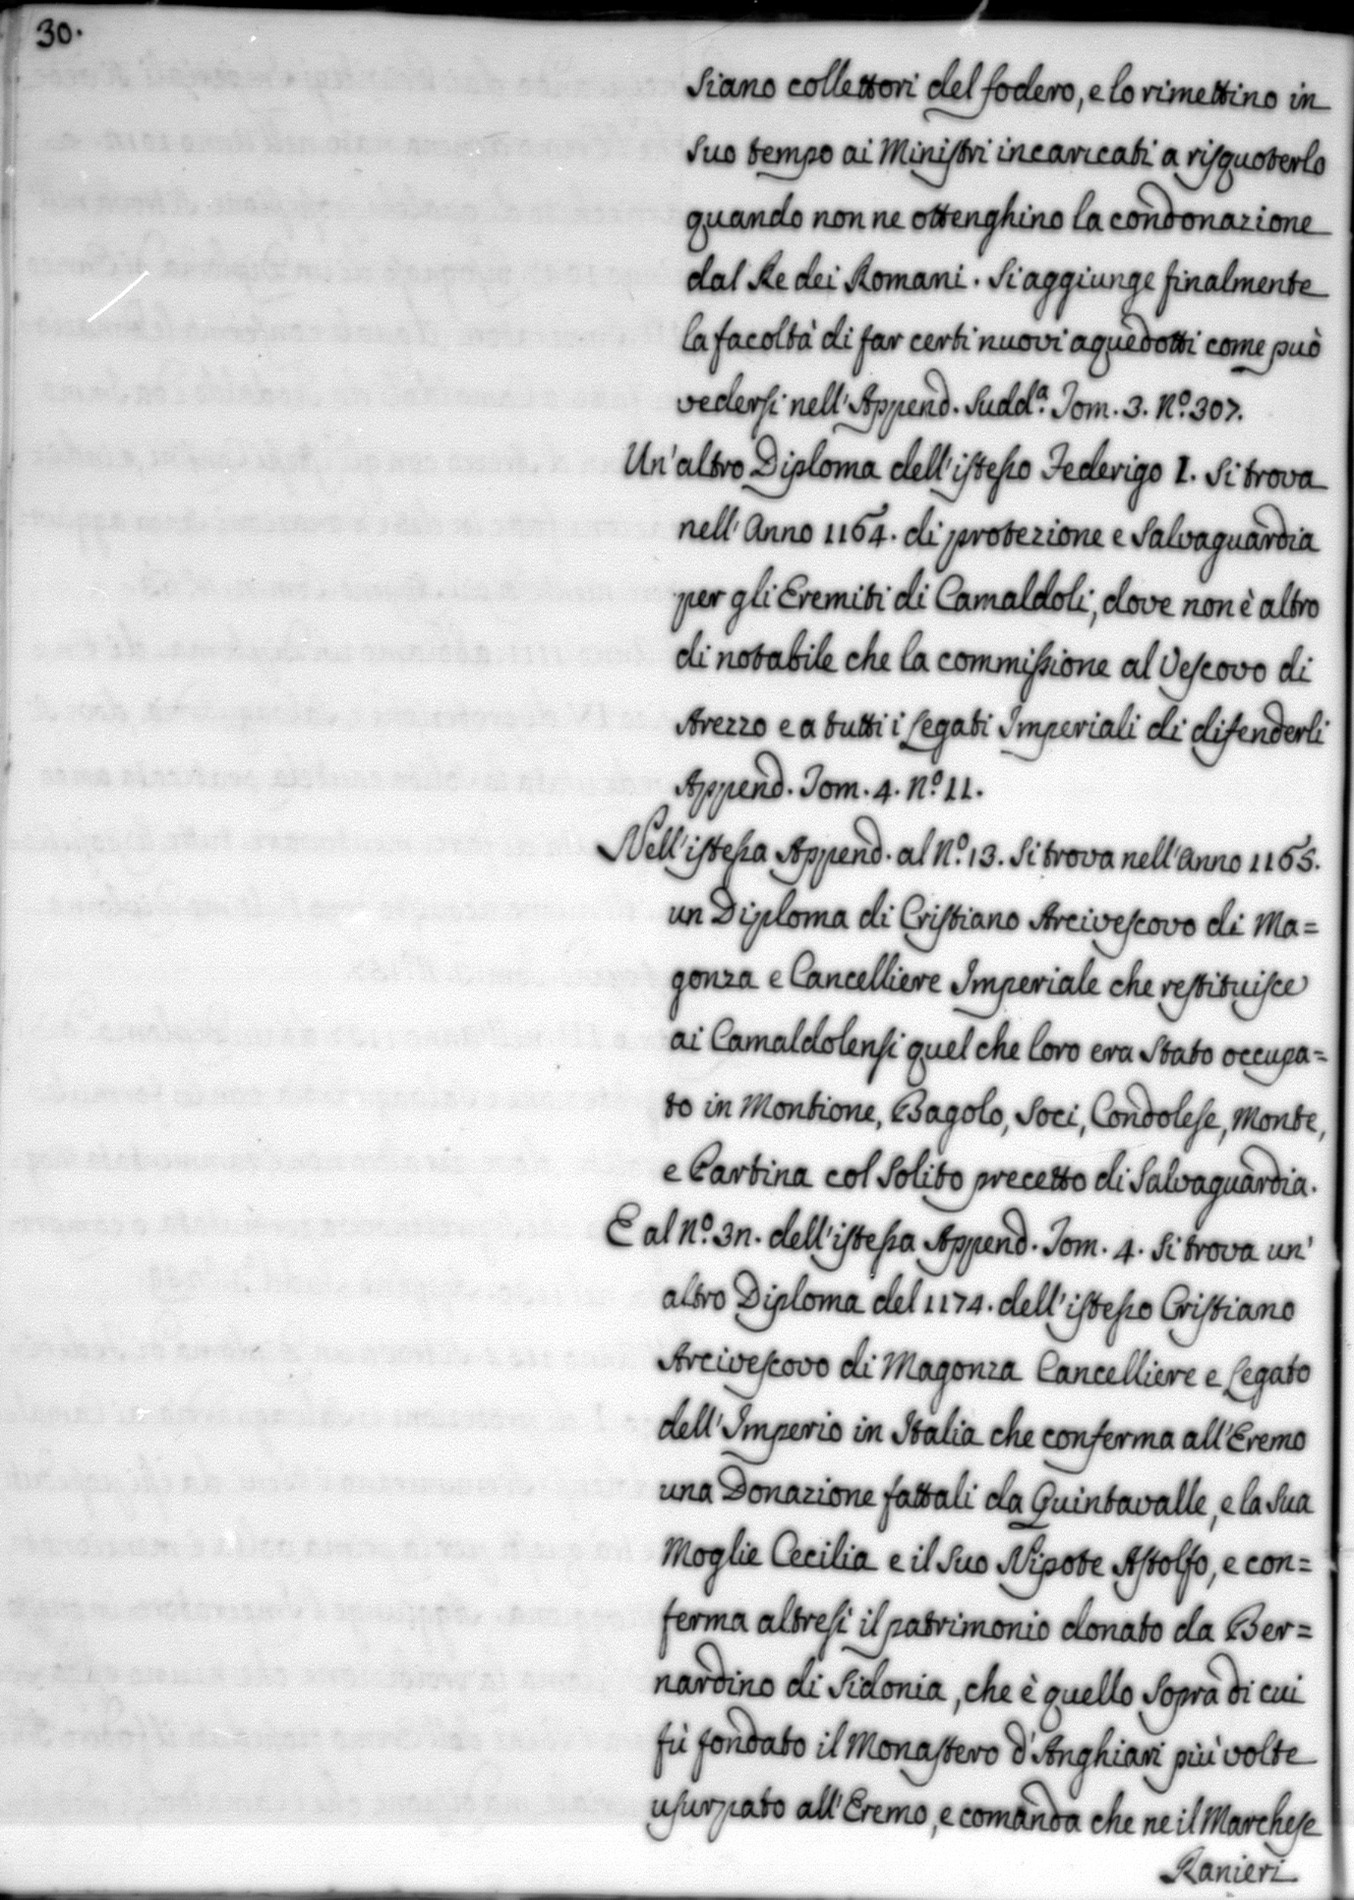 30.
siano collettori del fodero, e lo rimettino in
suo tempo ai Ministri incaricati a risquoterlo
quando non ne ottenghino la condonazione
dal Re dei Romani. Si aggiunge finalmente
la facoltà di far certi nuovi aquedotti come può
vedersi nell'Append. Sudd.ª Tom. 3. N.º 307.
Un'altro Diploma dell'istesso Federigo I. si trova
nell'Anno 1164. di protezione e Salvaguardia
per gli Eremiti di Camaldoli, dove non è altro
di notabile che la commissione al Vescovo di
Arezzo e a tutti i Legati Imperiali di difenderli
Append. Tom. 4. N.º 11.
Nell'istessa Append. al N.º 13. si trova nell'Anno 1165.
un Diploma di Cristiano Arcivescovo di Ma=
gonza e Cancelliere Imperiale che restituisce
ai Camaldolensi quel che loro era stato occupa=
to in Montione, Bagolo, Soci, Condolese, Monte,
e Partina col solito precetto di Salvaguardia.
E al N.º 3n. dell'istessa Append. Tom. 4. si trova un'
altro Diploma del 1174. dell'istesso Cristiano
Arcivescovo di Magonza Cancelliere e Legato
dell'Imperio in Italia che conferma all'Eremo
una Donazione fattali da Quintavalle, e la sua
Moglie Cecilia e il suo Nipote Astolfo, e con=
ferma altresì il patrimonio donato da Ber=
nardino di Sidonia, che è quello sopra di cui
fù fondato il Monastero d'Anghiari più volte
usurpato all'Eremo, e comanda che ne il Marchese
Ranieri